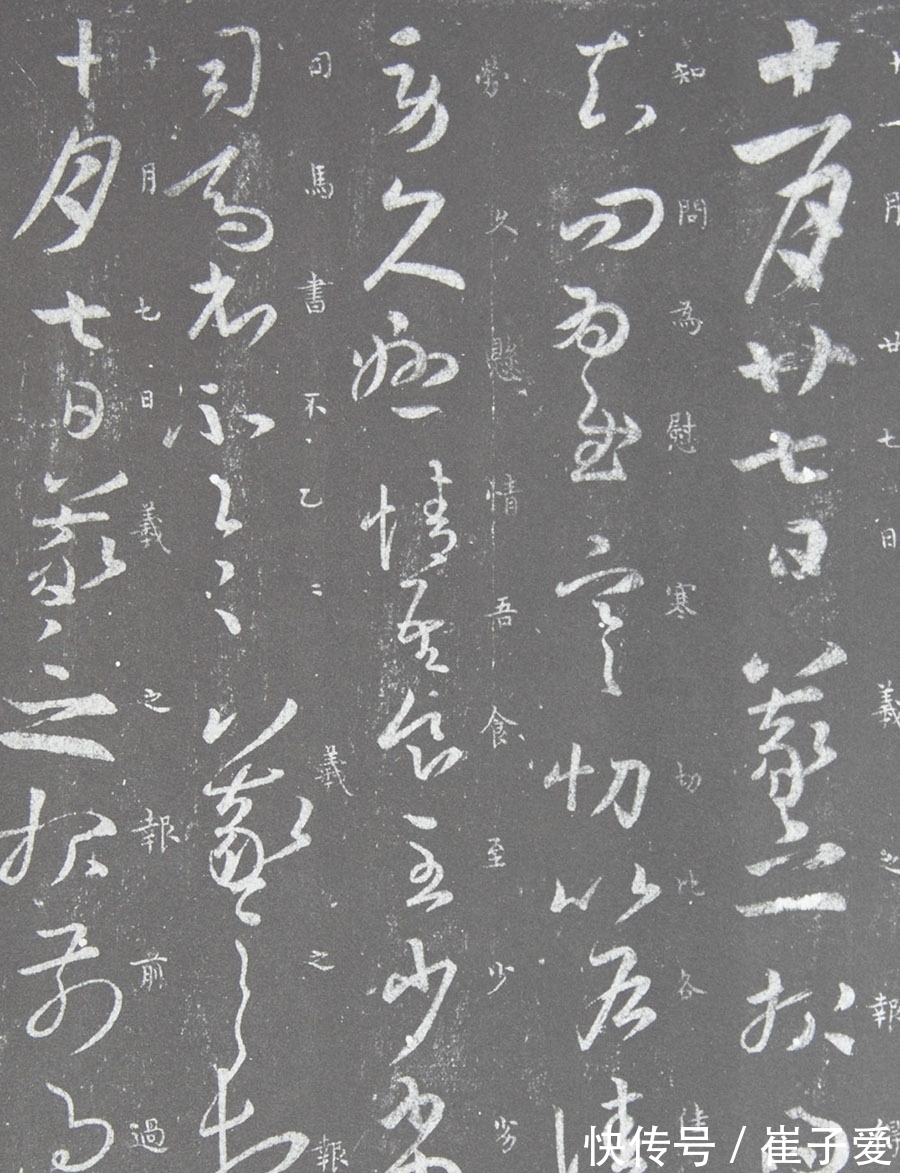 十一月廿七日羲之報得
十一月廿七日義之報得
知問為慰寒切比各佳
知問為慰寒切比各佳
勞久懸情吾食至少劣
勞久懸情吾食至少劣
司馬書不一一羲之報
司馬書不乙〻義之報
十月七日羲之報前過
十月七日義之報前過
快传号 / 崔子爱